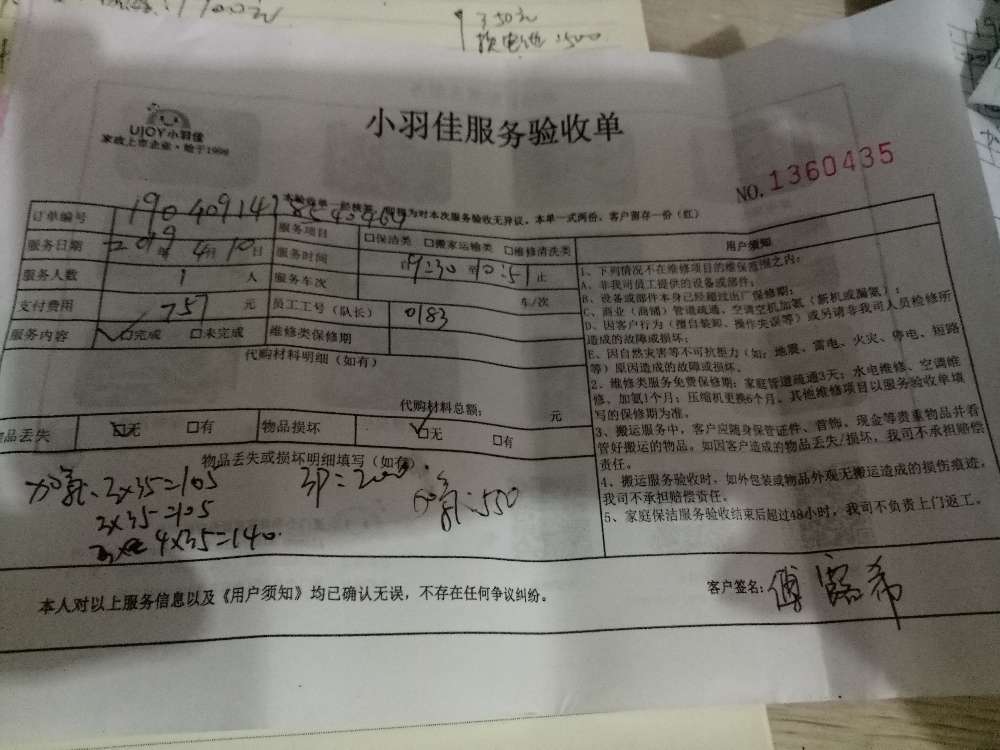 350元
换电池:500
UJOY小羽佳
家政上市企业·始于1999
小羽佳服务验收单
NO.1360435
订单编号
服务项目 □保洁类 □搬家运输类 □维修清洗类
服务日期 2019年4月10日
服务时间 自9:30至10:51止
服务人数 1 人
服务车次 车/次
支付费用 757 元
员工工号(队长) 0183
服务内容 ☑完成 □未完成
维修类保修期
代购材料明细(如有)
代购材料总额: 元
物品丢失 ☑无 □有
物品损坏 ☑无 □有
物品丢失或损坏明细填写(如有)
加氟:3×35=105
3×35=105
4×35=140
3P=200
加氟:550
用户须知
1、下列情况不在维修项目的维保范围之内:
A、非我司员工提供的设备或部件;
B、设备或部件本身已经超过出厂保修期;
C、商业(商铺)管道疏通、空调空机加氨(新机或漏氨);
D、因客户行为(擅自装卸、操作失误等)或另请非我司人员检修所
造成的故障或损坏;
E、因自然灾害等不可抗拒力(如:地震、雷电、火灾、停电、短路
等)原因造成的故障或损坏。
2、维修类服务免费保修期:家庭管道疏通3天;水电维修、空调维
修、加氨1个月;压缩机更换6个月。其他维修项目以服务验收单填
写的保修期为准。
3、搬运服务中,客户应随身保管证件、首饰、现金等贵重物品并看
管好搬运的物品。如因客户造成的物品丢失/损坏,我司不承担赔偿
责任。
4、搬运服务验收时,如外包装或物品外观无搬运造成的损伤痕迹,
我司不承担赔偿责任。
5、家庭保洁服务验收结束后超过48小时,我司不负责上门返工。
本人对以上服务信息以及《用户须知》均已确认无误,不存在任何争议纠纷。
客户签名:傅露希